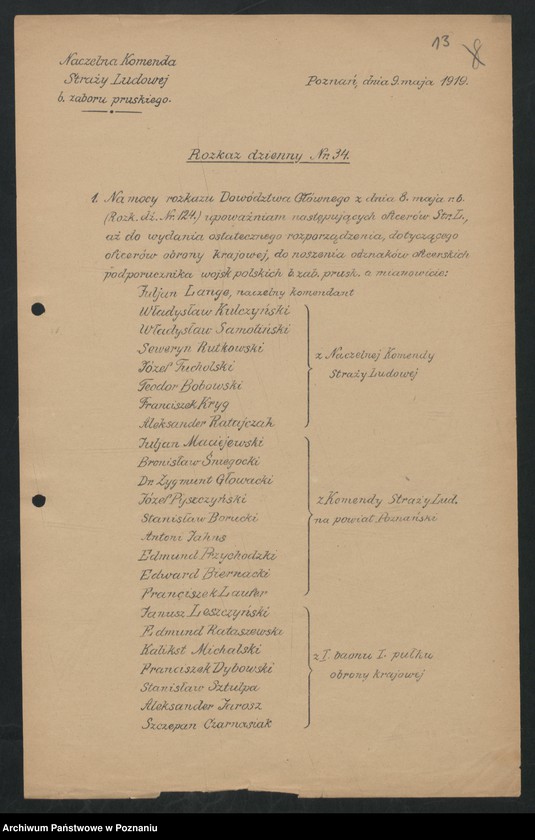 13
8
Naczelna Komenda
Straży Ludowej
b. zaboru pruskiego.
Poznań, dnia 9. maja 1919.
Rozkaz dzienny Nr. 34.
1. Na mocy rozkazu Dowództwa Głównego z dnia 8. maja r.b.
(Rozk. dz. Nr. 124.) upoważniam następujących oficerów Str. L.,
aż do wydania ostatecznego rozporządzenia, dotyczącego
oficerów obrony krajowej, do noszenia odznaków oficerskich
podporucznika wojsk polskich b. zab. prusk. a mianowicie:
Juljan Lange, naczelny komendant
Władysław Kulczyński
Władysław Samoliński
Seweryn Rutkowski
Józef Tucholski
Teodor Bobowski
Franciszek Kryg
Aleksander Ratajczak
z Naczelnej Komendy
Straży Ludowej
Juljan Maciejewski
Bronisław Śniegocki
Dr. Zygmunt Głowacki
Józef Pyszczyński
Stanisław Borucki
Antoni Jahns
Edmund Przychodzki
Edward Biernacki
Franciszek Laufer
z Komendy Straży Lud.
na powiat Poznański
Janusz Leszczyński
Edmund Rataszewski
Kalikst Michalski
Franciszek Dybowski
Stanisław Sztulpa
Aleksander Jurosz
Szczepan Czarnasiak
z I. baonu I. pułku
obrony krajowej
Archiwum Państwowe w Poznaniu